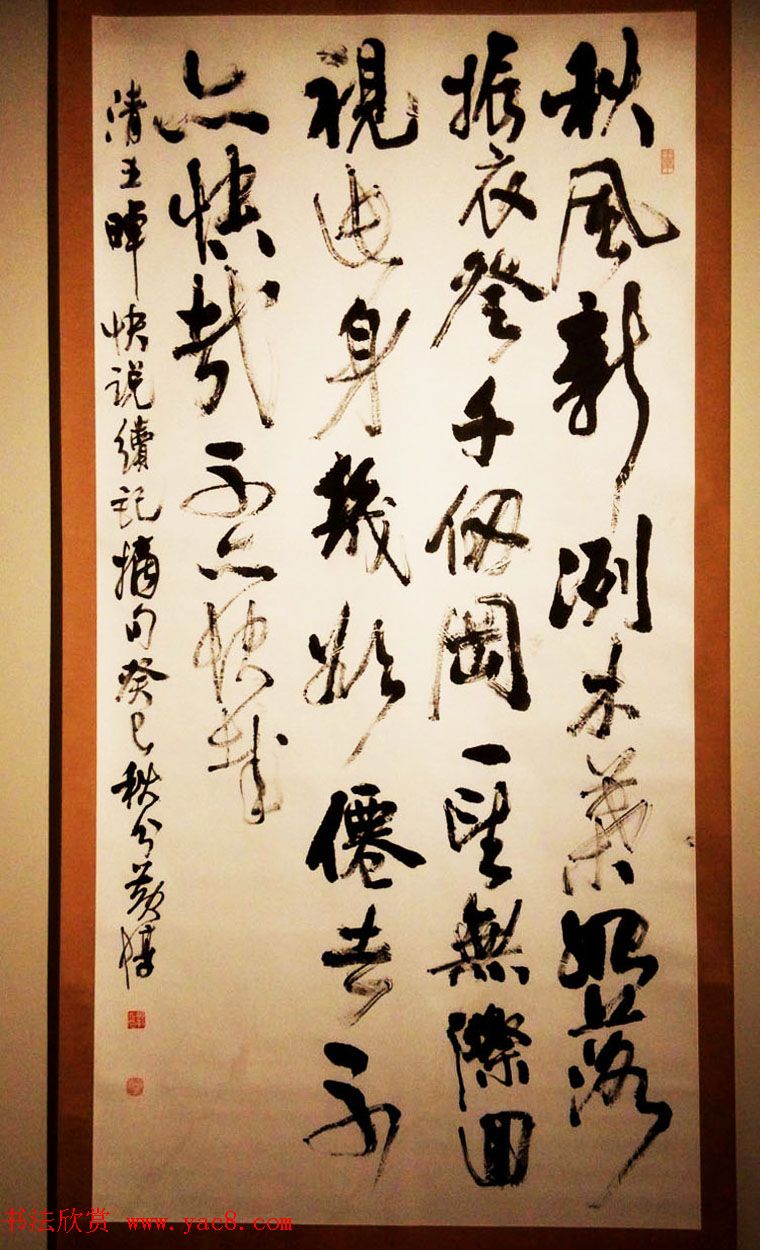 秋風新洌木葉始落
振衣登千仞岡一望無際回
視此身幾欲僊去不
亦快哉不亦快哉
清王晫快说續記摘句癸巳秋分黄惇
书法欣赏 www.yac8.com